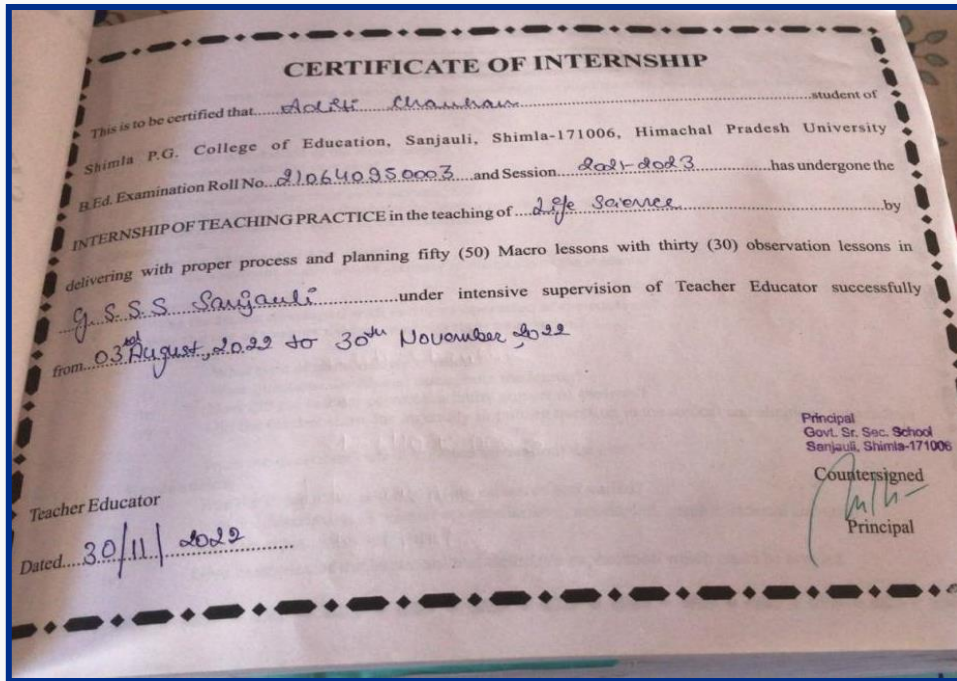 CERTIFICATE OF INTERNSHIP
This is to be certified that Aditi Chauhan student of
Shimla P.G. College of Education, Sanjauli, Shimla-171006, Himachal Pradesh University
B.Ed. Examination Roll No. 210640950003 and Session 2021-2023 has undergone the
INTERNSHIP OF TEACHING PRACTICE in the teaching of Life Science by
delivering with proper process and planning fifty (50) Macro lessons with thirty (30) observation lessons in
G.S.S.S Sanjauli under intensive supervision of Teacher Educator successfully
from 03 August, 2022 to 30th November, 2022
Principal
Govt. Sr. Sec. School
Sanjauli, Shimla-171006
Countersigned
Principal
Teacher Educator
Dated 30/11/2022